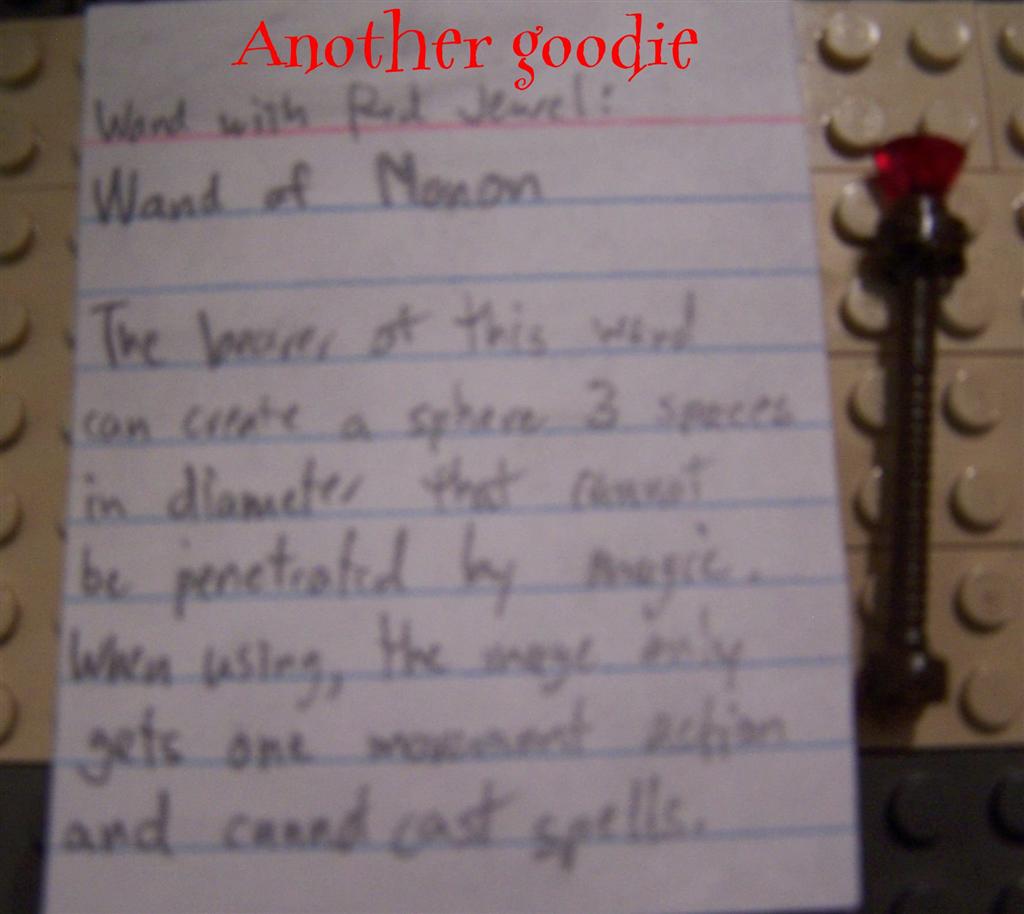 Another goodie
Wand with Red Jewel:
Wand of Monon
The bearer of this wand
can create a sphere 3 spaces
in diameter that cannot
be penetrated by magic.
When using, the mage only
gets one movement action
and cannot cast spells.